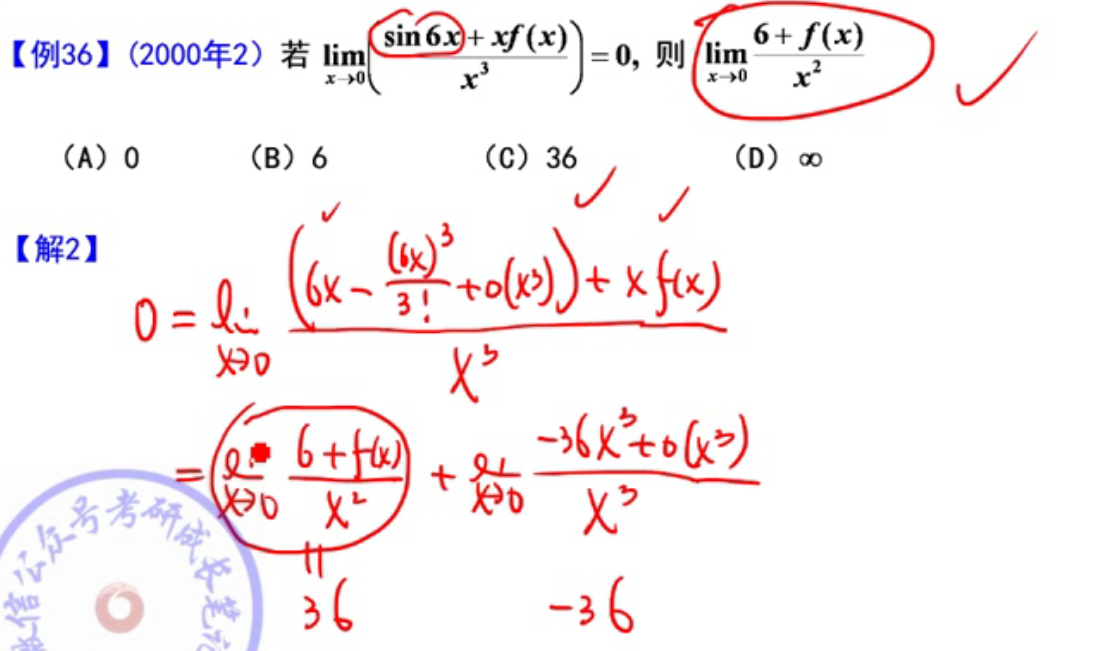 【例36】(2000年2) 若 lim_{x→0}((sin6x + xf(x))/x³) = 0, 则 lim_{x→0} (6 + f(x))/x²
(A) 0 (B) 6 (C) 36 (D) ∞
【解2】
0 = lim_{x→0} ((6x - (6x)³/3! + o(x³)) + x f(x))/x³
= lim_{x→0} (6 + f(x))/x² + lim_{x→0} (-36x³ + o(x³))/x³
= 36 -36
微信公众号考研成长笔记